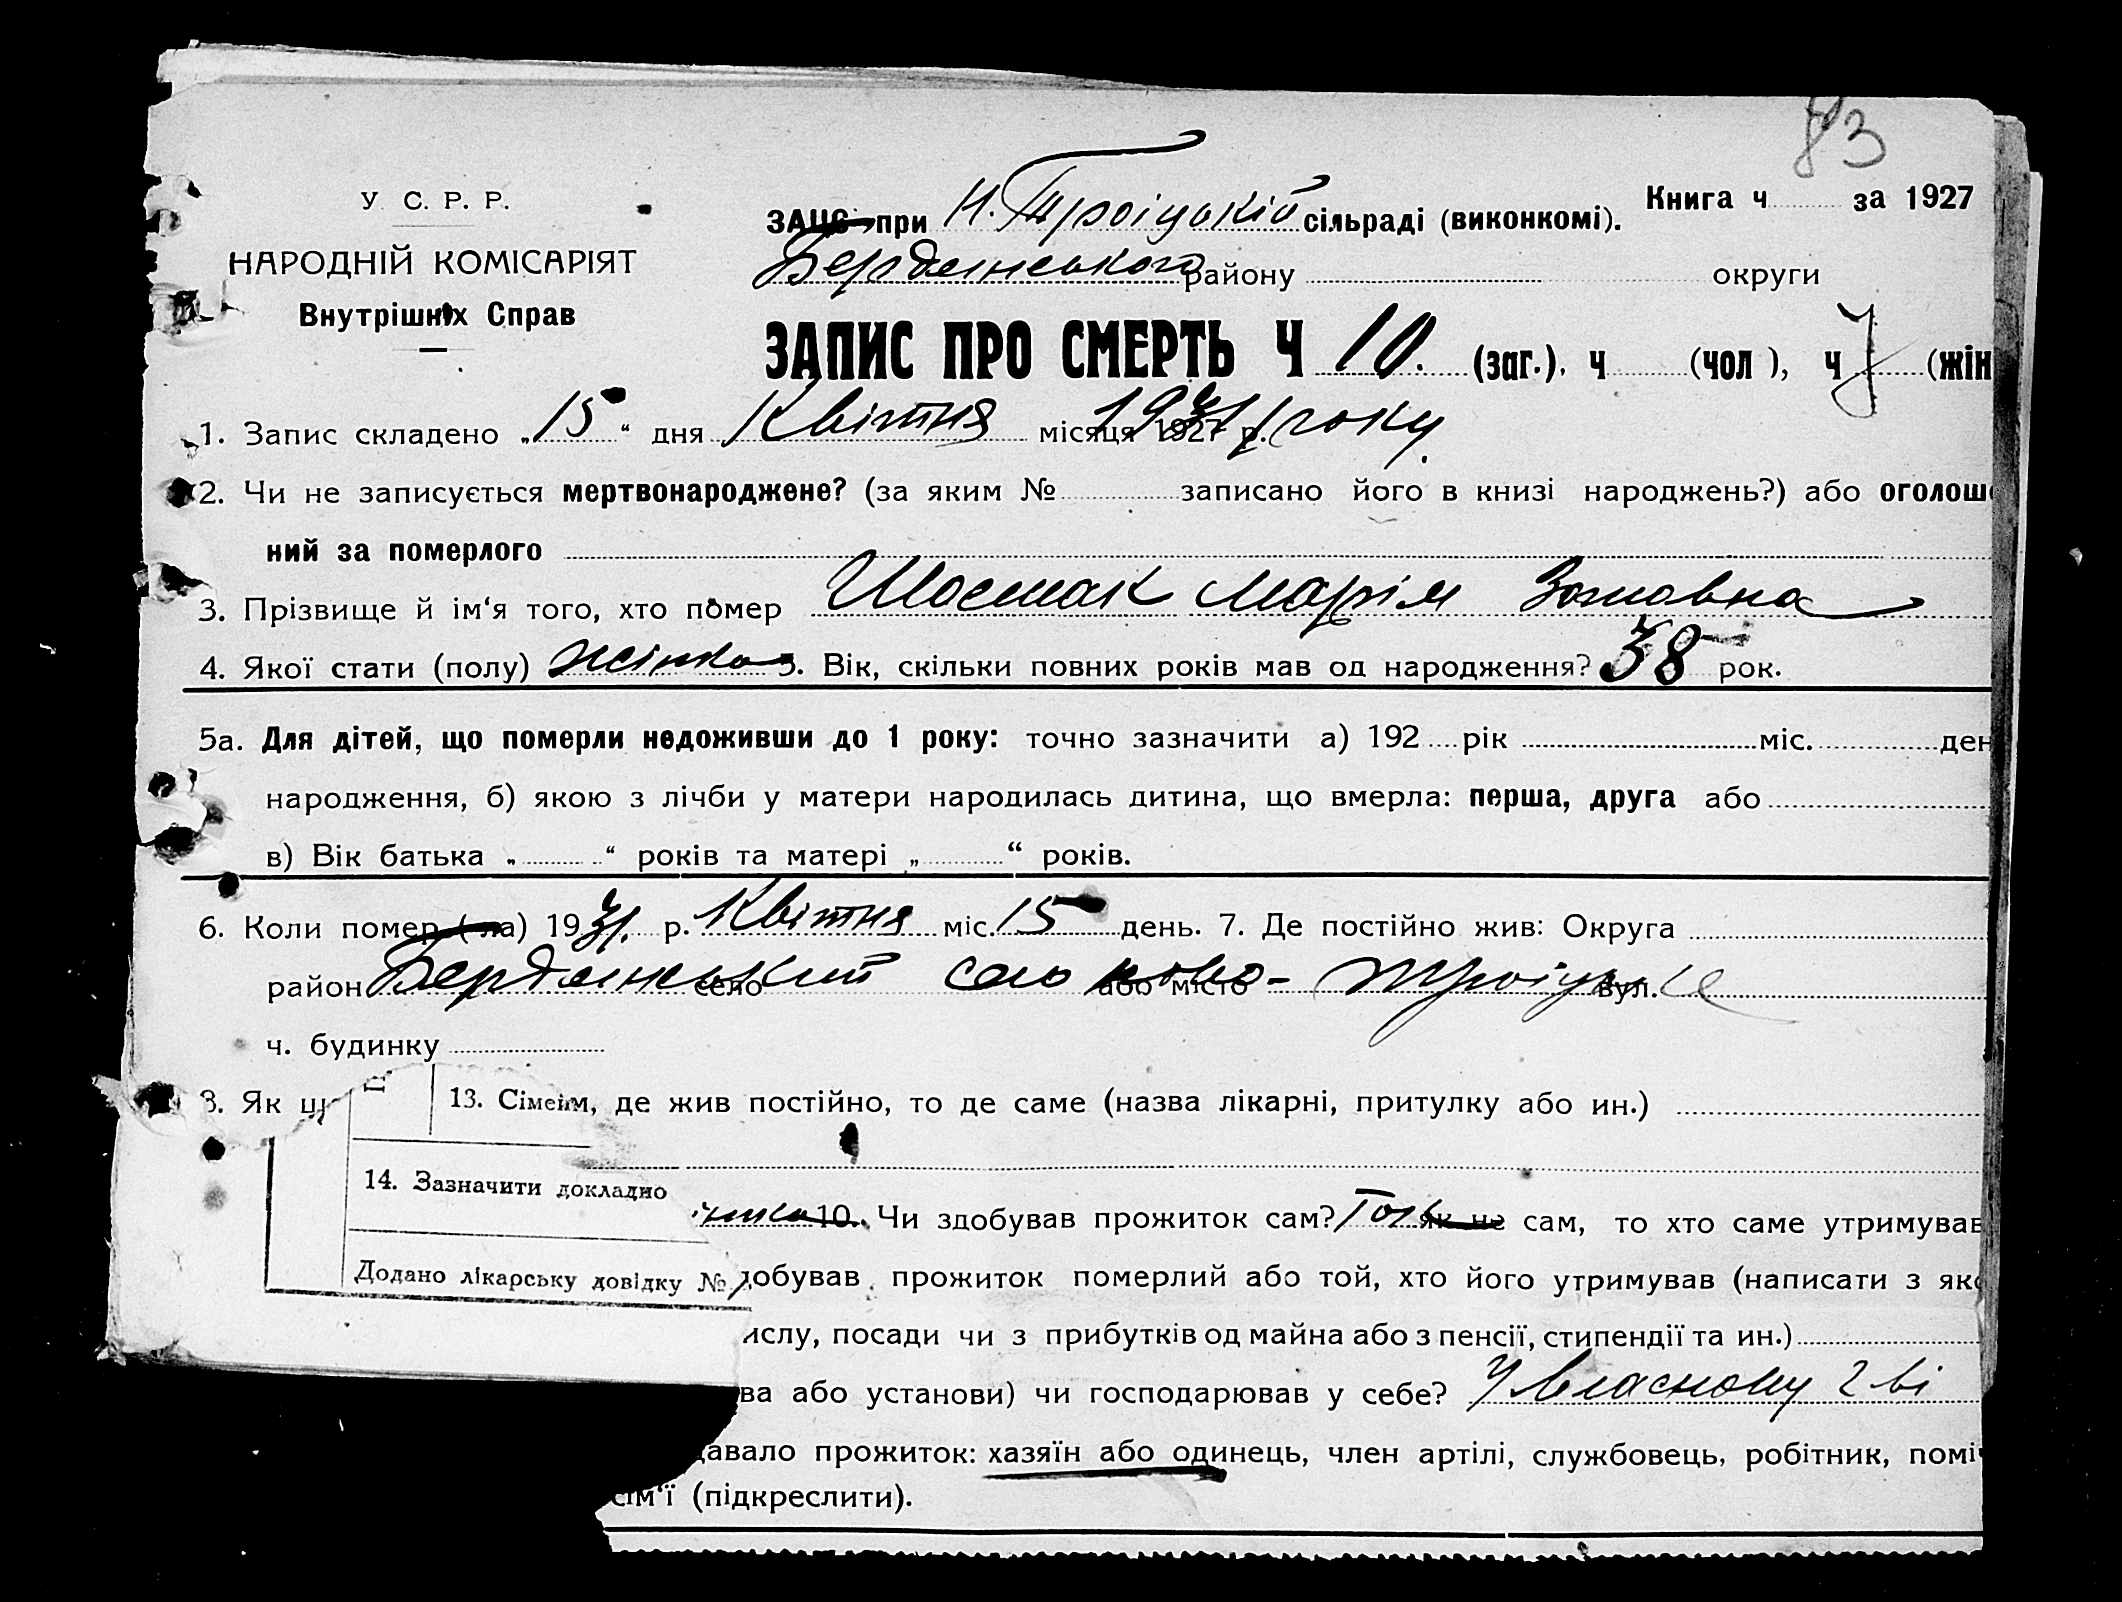 83
У. С. Р. Р.
НАРОДНІЙ КОМІСАРІЯТ
Внутрішніх Справ
Книга ч. за 1927
ЗАЦС при Н. Троіцькій сільраді (виконкомі).
Бердянського району округи
ЗАПИС ПРО СМЕРТЬ Ч 10. (заг.). ч (чол ), ч 7 (жін
1. Запис складено „15“ дня Квітня місяця 1927 р. 1931 року
2. Чи не записується мертвонароджене? (за яким № записано його в книзі народжень?) або оголоше
ний за померлого
3. Прізвище й ім‘я того, хто помер Шостак Марія Зотовна
4. Якої стати (полу) Жінка 5. Вік, скільки повних років мав од народження? 38 рок.
5а. Для дітей, що померли недоживши до 1 року: точно зазначити а) 192 рік міс. ден
народження, б) якою з лічби у матери народилась дитина, що вмерла: перша, друга або
в) Вік батька „ “ років та матері „ “ років.
6. Коли помер (-ла) 1931. р. Квітня міс. 15 день. 7. Де постійно жив: Округа
район Бердянський село село або місто Ново-Троіцьке вул.
ч. будинку
8. Як
13. Сімейн
м, де жив постійно, то де саме (назва лікарні, притулку або ин.)
14. Зазначити докладно
інка 10. Чи здобував прожиток сам? Так як не сам, то хто саме утримував
Додано лікарську довідку №
добував прожиток померлий або той, хто його утримував (написати з яко
ислу, посади чи з прибутків од майна або з пенсії, стипендії та ин.)
ва або установи) чи господарював у себе? У власному г-ві
давало прожиток: хазяїн або одинець, член артілі, службовець, робітник, поміч
сім‘ї (підкреслити).